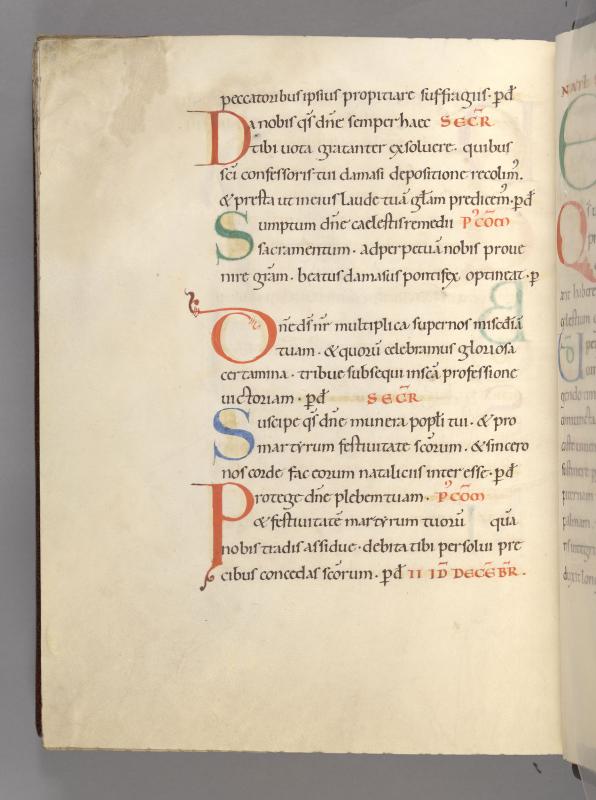 peccatoribus ipsius propitiare suffragiis· pđ
Da nobis qs̄ dn̄e semper haec SECR̄
tibi uota gratanter exsoluere· quibus
sc̄i confessoris tui damasi depositione recolim᾽.
& presta ut in eius laude tuā gl̄am predicem᾽· pđ
Sumptum dn̄e caelestis remedii P᾽ CŌM
sacramentum· ad perpetuā nobis proue
nire grām· beatus damasus pontifex optineat· p
Dn̄e ds̄ nr̄ multiplica super nos mi̅sc̅dīā
tuam· & quorū celebramus gloriosa
certamina· tribue subsequi in sc̄ā professione
uictoriam· pđ SECR̄
Suscipe qs̄ dn̄e munera popl̄i tui· & pro
martyrum festiuitate sc̄orum· & sincero
nos corde fac eorum nataliciis interesse· pđ
Protege dn̄e plebem tuam· P᾽ CŌM
& festiuitatē martyrum tuorū quā
nobis tradis assidue· debita tibi persolui pre
cibus concedas sc̄orum· pđ II ID̄ DECĒBR̄.
NAT̄